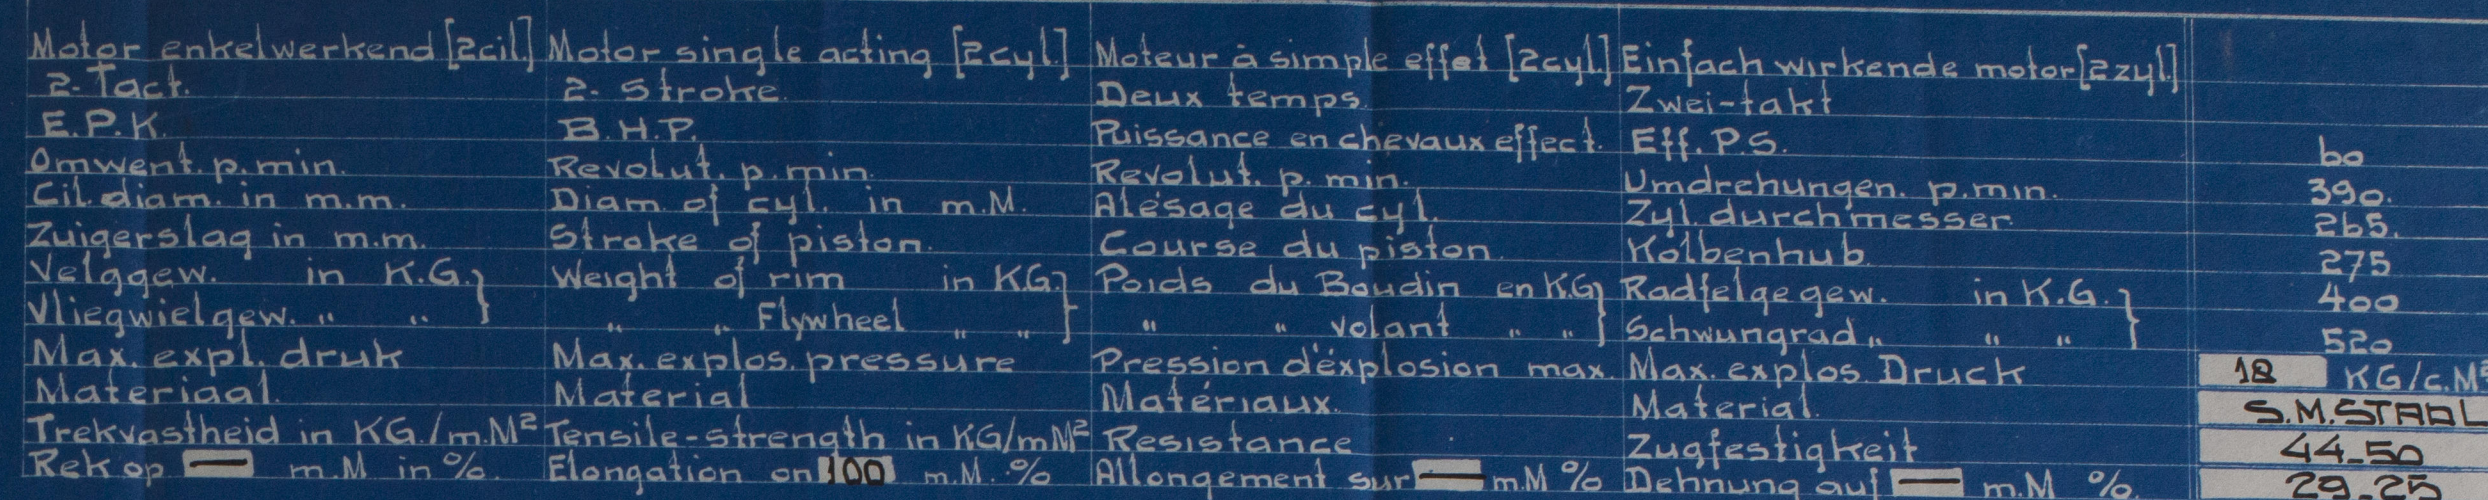 Motor enkelwerkend [2cil.] Motor single acting [2cyl.] Moteur à simple effet [2cyl.] Einfach wirkende motor [2zyl.]
2-Tact. 2-Stroke. Deux temps. Zwei-takt
E.P.K. B.H.P. Puissance en chevaux effect. Eff. P.S. 60
Omwent. p. min. Revolut. p. min. Revolut. p. min. Umdrehungen. p. min. 390.
Cil. diam. in m.m. Diam of cyl. in m.M. Alésage du cyl. Zyl. durchmesser. 265.
Zuigerslag in m.m. Stroke of piston. Course du piston. Kolbenhub. 275
Velggew. in K.G. } Weight of rim in KG. } Poids du Boudin en KG } Radfelgegew. in K.G. } 400
Vliegwielgew. " " } " " Flywheel " " } " " volant " " } Schwungrad " " " } 520
Max. expl. druk Max. explos. pressure Pression d'éxplosion max. Max. explos. Druck 18 KG/c.M²
Materiaal. Material Matériaux. Material. S.M.STAAL
Trekvastheid in KG./m.M² Tensile-strength in KG/mM² Resistance Zugfestigkeit 44-50
Rek op — m.M in %. Elongation on 100 m.M. % Allongement sur — m.M % Dehnung auf — m.M %. 29-25